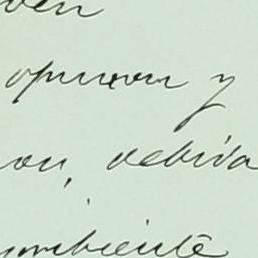 opinion y
on, debida
ambiente